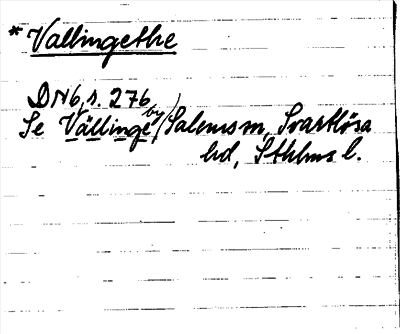 * Vallingethe
DN 6, s. 276
Se Vällinge by, Salems sn, Svartlösa
hd, Sthlms l.